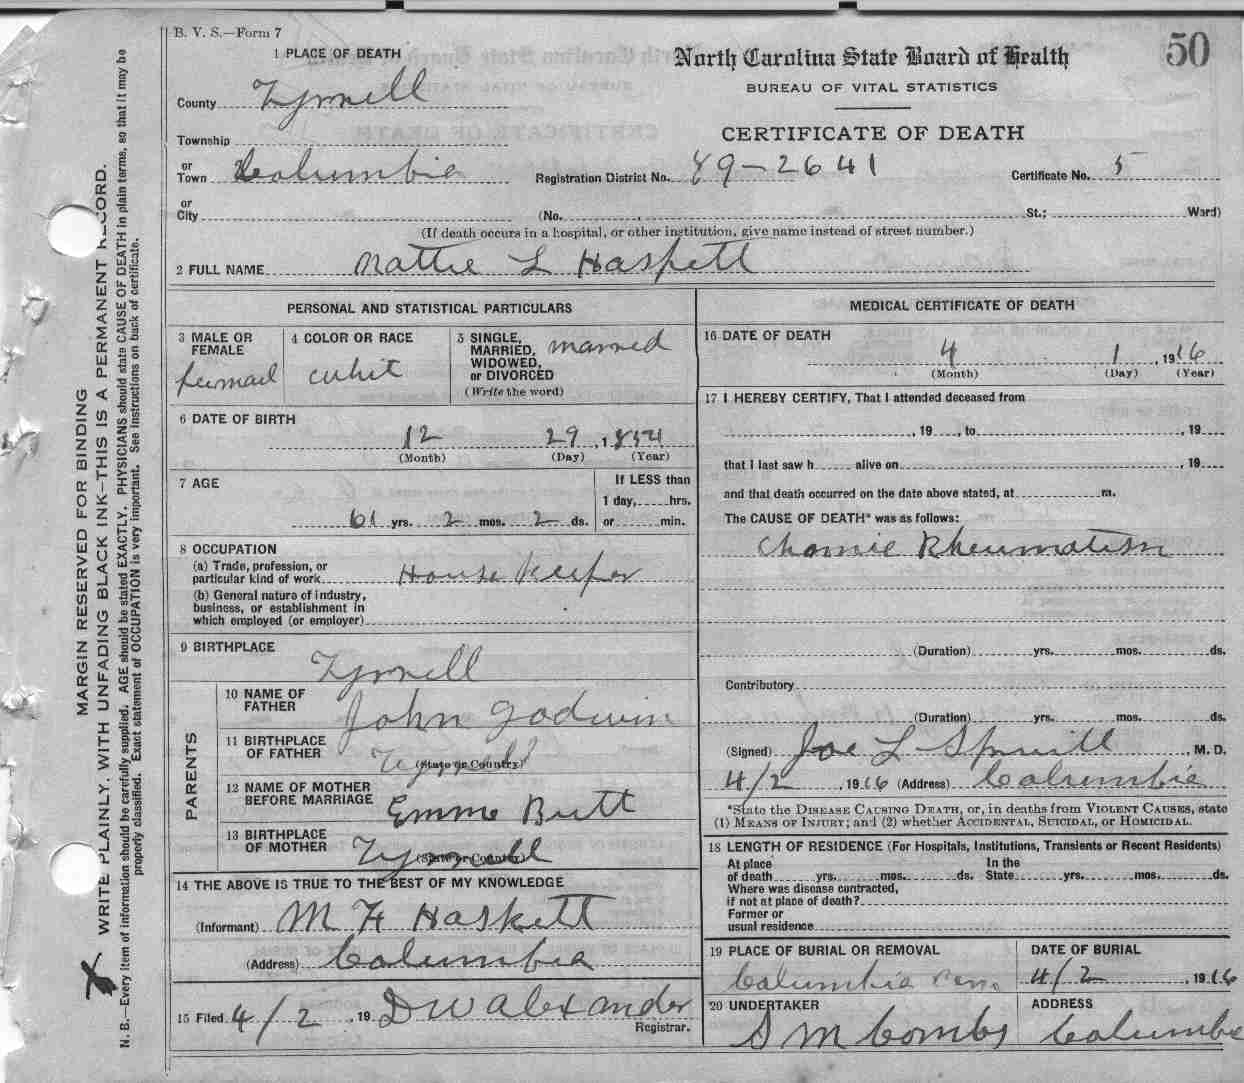 B. V. S.—Form 7
50
North Carolina State Board of Health
BUREAU OF VITAL STATISTICS
CERTIFICATE OF DEATH
1 PLACE OF DEATH
County Tyrrell
Township
or
Town Columbia
Registration District No. 89-2641 Certificate No. 5
or
City (No. , St.; Ward)
(If death occurs in a hospital, or other institution, give name instead of street number.)
2 FULL NAME Mattie L Haskett
PERSONAL AND STATISTICAL PARTICULARS
3 MALE OR FEMALE
4 COLOR OR RACE
5 SINGLE, MARRIED, WIDOWED, or DIVORCED
(Write the word)
married
6 DATE OF BIRTH
12 29, 1854
(Month) (Day) (Year)
7 AGE
61 yrs. 2 mos. 2 ds.
If LESS than
1 day, hrs.
or min.
8 OCCUPATION
(a) Trade, profession, or
particular kind of work House Keeper
(b) General nature of industry,
business, or establishment in
which employed (or employer)
9 BIRTHPLACE
Tyrrell
PARENTS
10 NAME OF FATHER
John Godwin
11 BIRTHPLACE OF FATHER
(State or Country)
Tyrrell
12 NAME OF MOTHER BEFORE MARRIAGE
Emma Britt
13 BIRTHPLACE OF MOTHER
(State or Country)
Tyrrell
14 THE ABOVE IS TRUE TO THE BEST OF MY KNOWLEDGE
(Informant) M F Haskett
(Address) Columbia
15 Filed 4/2, 19 D W Alexander
Registrar.
MEDICAL CERTIFICATE OF DEATH
16 DATE OF DEATH
4 1, 1916
(Month) (Day) (Year)
17 I HEREBY CERTIFY, That I attended deceased from
, 19 , to , 19
that I last saw h alive on , 19
and that death occurred on the date above stated, at m.
The CAUSE OF DEATH* was as follows:
Chronic Rheumatism
(Duration) yrs. mos. ds.
Contributory
(Duration) yrs. mos. ds.
(Signed) Joe L Spruill, M. D.
4/2 1916 (Address) Columbia
*State the DISEASE CAUSING DEATH, or, in deaths from VIOLENT CAUSES, state
(1) MEANS OF INJURY; and (2) whether ACCIDENTAL, SUICIDAL, or HOMICIDAL.
18 LENGTH OF RESIDENCE (For Hospitals, Institutions, Transients or Recent Residents)
At place of death yrs. mos. ds. In the State yrs. mos. ds.
Where was disease contracted,
if not at place of death?
Former or
usual residence
19 PLACE OF BURIAL OR REMOVAL
Columbia Cem
DATE OF BURIAL
4/2 1916
20 UNDERTAKER
S M Combs
ADDRESS
Columbia
MARGIN RESERVED FOR BINDING
WRITE PLAINLY, WITH UNFADING BLACK INK—THIS IS A PERMANENT RECORD.
N. B.—Every item of information should be carefully supplied. AGE should be stated EXACTLY. PHYSICIANS should state CAUSE OF DEATH in plain terms, so that it may be
properly classified. Exact statement of OCCUPATION is very important. See instructions on back of certificate.